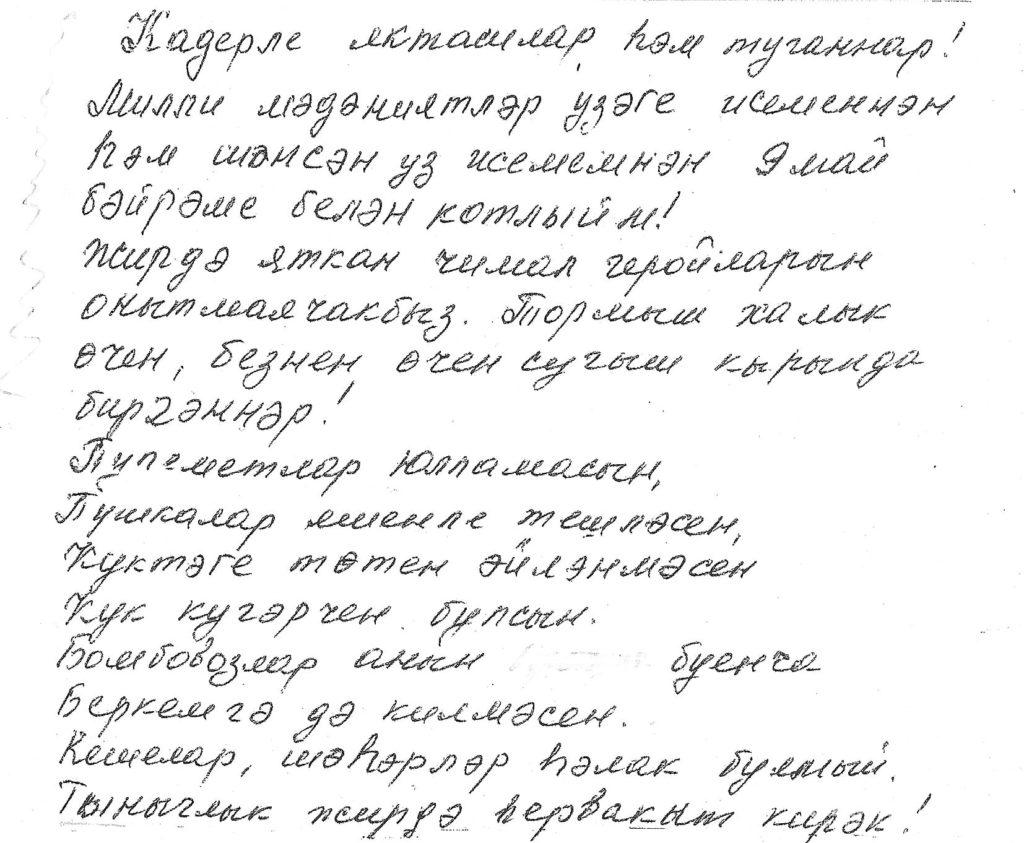 Кадерле якташлар һәм туганнар!
Милли мәдәниятләр үзәге исеменнән
һәм шәхсән уз исемемнән 9 май
бәйрәме белән котлыйм!
Жирдә яткан чимал геройларын
онытмаячакбыз. Тормыш халык
өчен, безнен өчен сугыш кырында
биргәннәр!
Пулеметлар юлламасын,
Пушкалар яшенле тешләсен,
Күктәге төтен әйләнмәсен
Кук кугәрчен булсын.
Бомбовозлар анын буенча
Беркемгә дә килмәсен.
Кешелар, шәһәрләр һәлак булмый.
Тынычлык жирдә һервакыт кирәк!